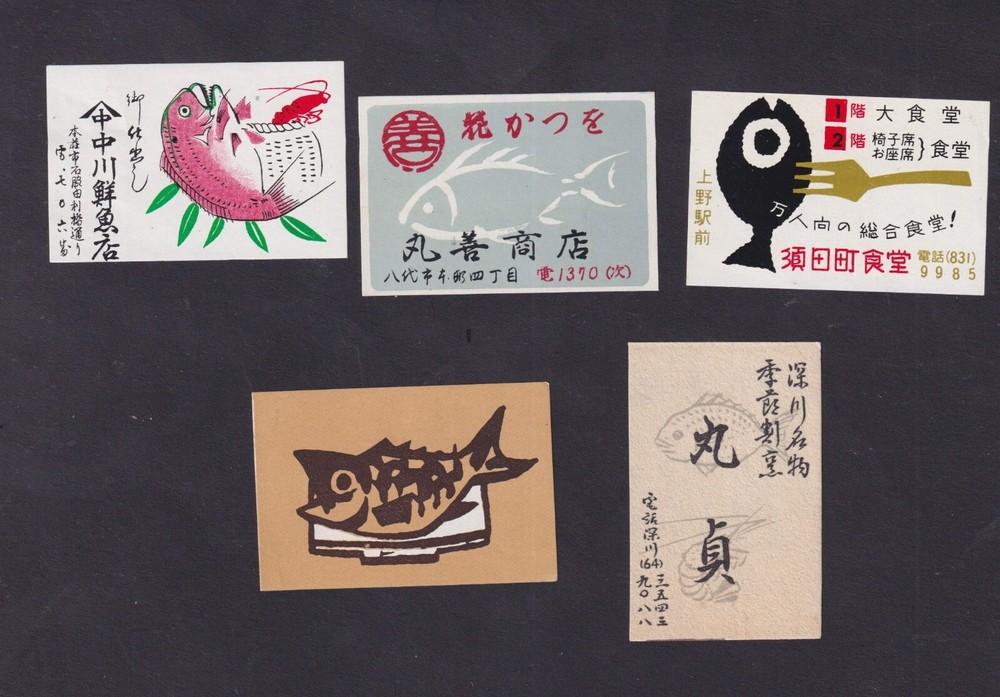 御仕出し
中川鮮魚店
本荘市石脇由利橋通り
電.七〇六番
善
花かつを
丸善商店
八代市本町四丁目 電1370(次)
1階 大食堂
2階 椅子席 お座席 }食堂
上野駅前
万人向の総合食堂!
須田町食堂
電話(831)
9985
深川名物
季節割烹
丸貞
電話深川(64)三五四三
九〇八八